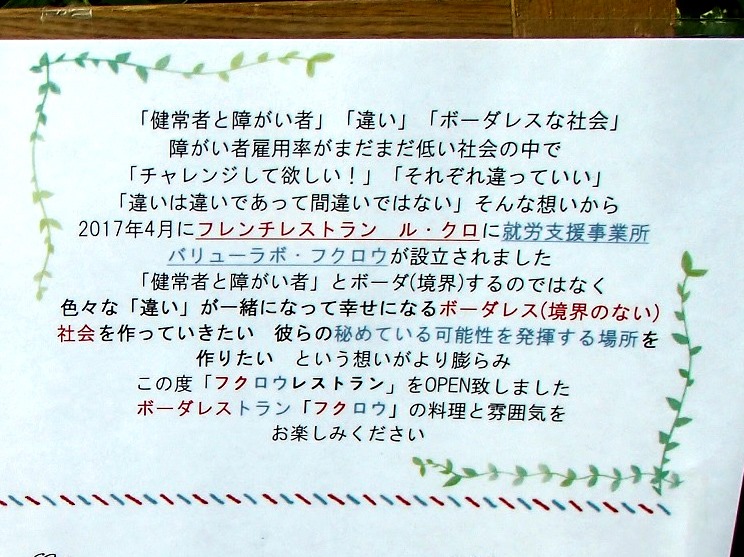 「健常者と障がい者」「違い」「ボーダレスな社会」
障がい者雇用率がまだまだ低い社会の中で
「チャレンジして欲しい！」「それぞれ違っていい」
「違いは違いであって間違いではない」そんな想いから
2017年4月にフレンチレストラン　ル・クロに就労支援事業所
バリューラボ・フクロウが設立されました
「健常者と障がい者」とボーダ(境界)するのではなく
色々な「違い」が一緒になって幸せになるボーダレス(境界のない)
社会を作っていきたい　彼らの秘めている可能性を発揮する場所を
作りたい　という想いがより膨らみ
この度「フクロウレストラン」をOPEN致しました
ボーダレストラン「フクロウ」の料理と雰囲気を
お楽しみください